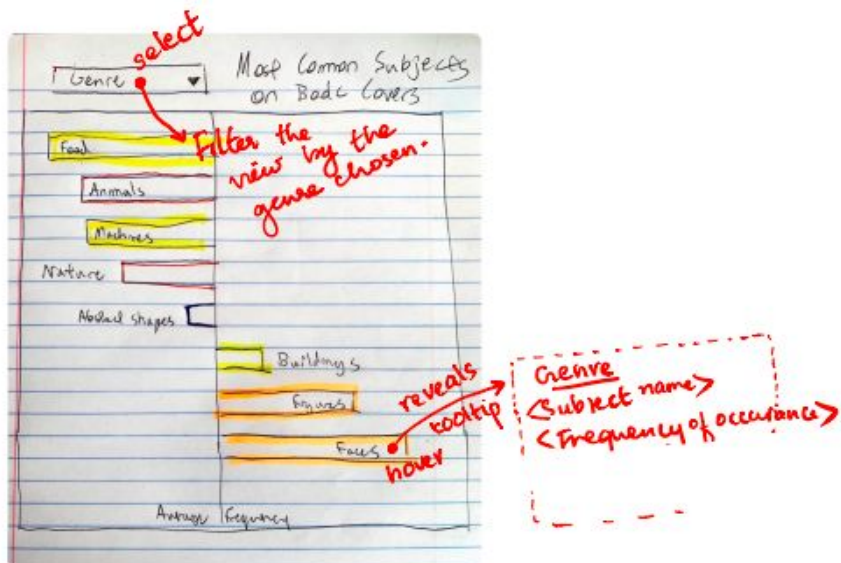 select
Genre
Most Common Subjects
on Book Covers
Filter the
view by the
genre chosen.
Food
Animals
Machines
Nature
Abstract shapes
Buildings
Figures
Faces
hover
reveals
tooltip
Genre
<Subject name>
<Frequency of occurance>
Average Frequency